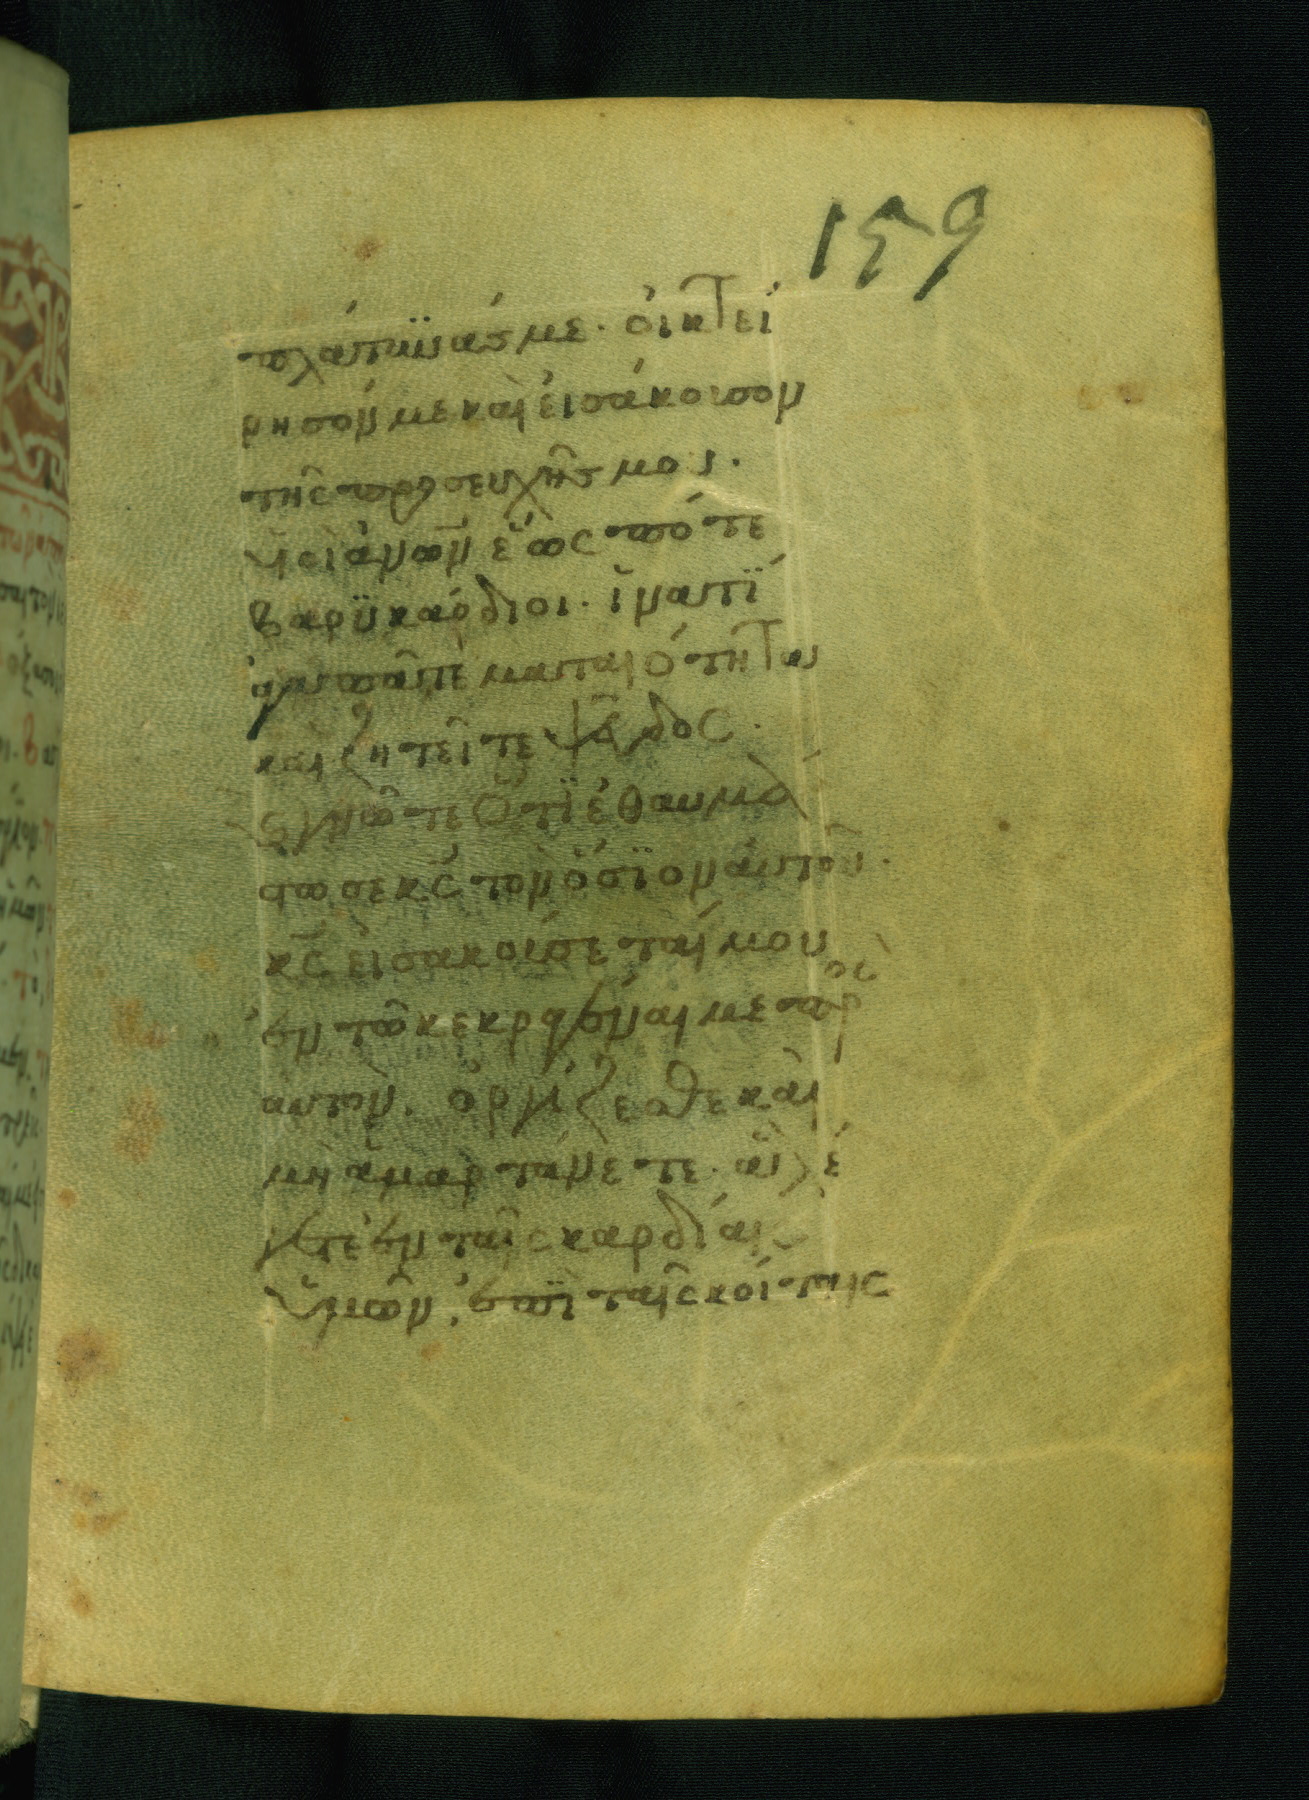 πλάτυνάς με· οἰκτεί
ρησόν με καὶ εἰσάκουσον
τῆς προσευχῆς μου.
υἱοὶ ἀν̅ω̅ν̅ ἕως πότε
βαρϋκάρδιοι· ἱνατΐ
ἀγαπᾶτε ματαιότητα
καὶ ζητεῖτε ψεῦδος·
Γνῶτε ὅτϊ ἐθαυμά
στωσε κ̅ς̅ τὸν ὅσϊον αὐτοῦ·
κ̅ς̅ εἰσακούσεταί μου
ἐν τῷ κεκραγέναι με πρὸς
αὐτόν. ὀργίζεσθε καὶ
μὴ ἁμαρτάνετε· ἃ λέ
γετε ἐν ταῖς καρδίαις
ὑμῶν, ἐπῒ ταῖς κοίταις
159